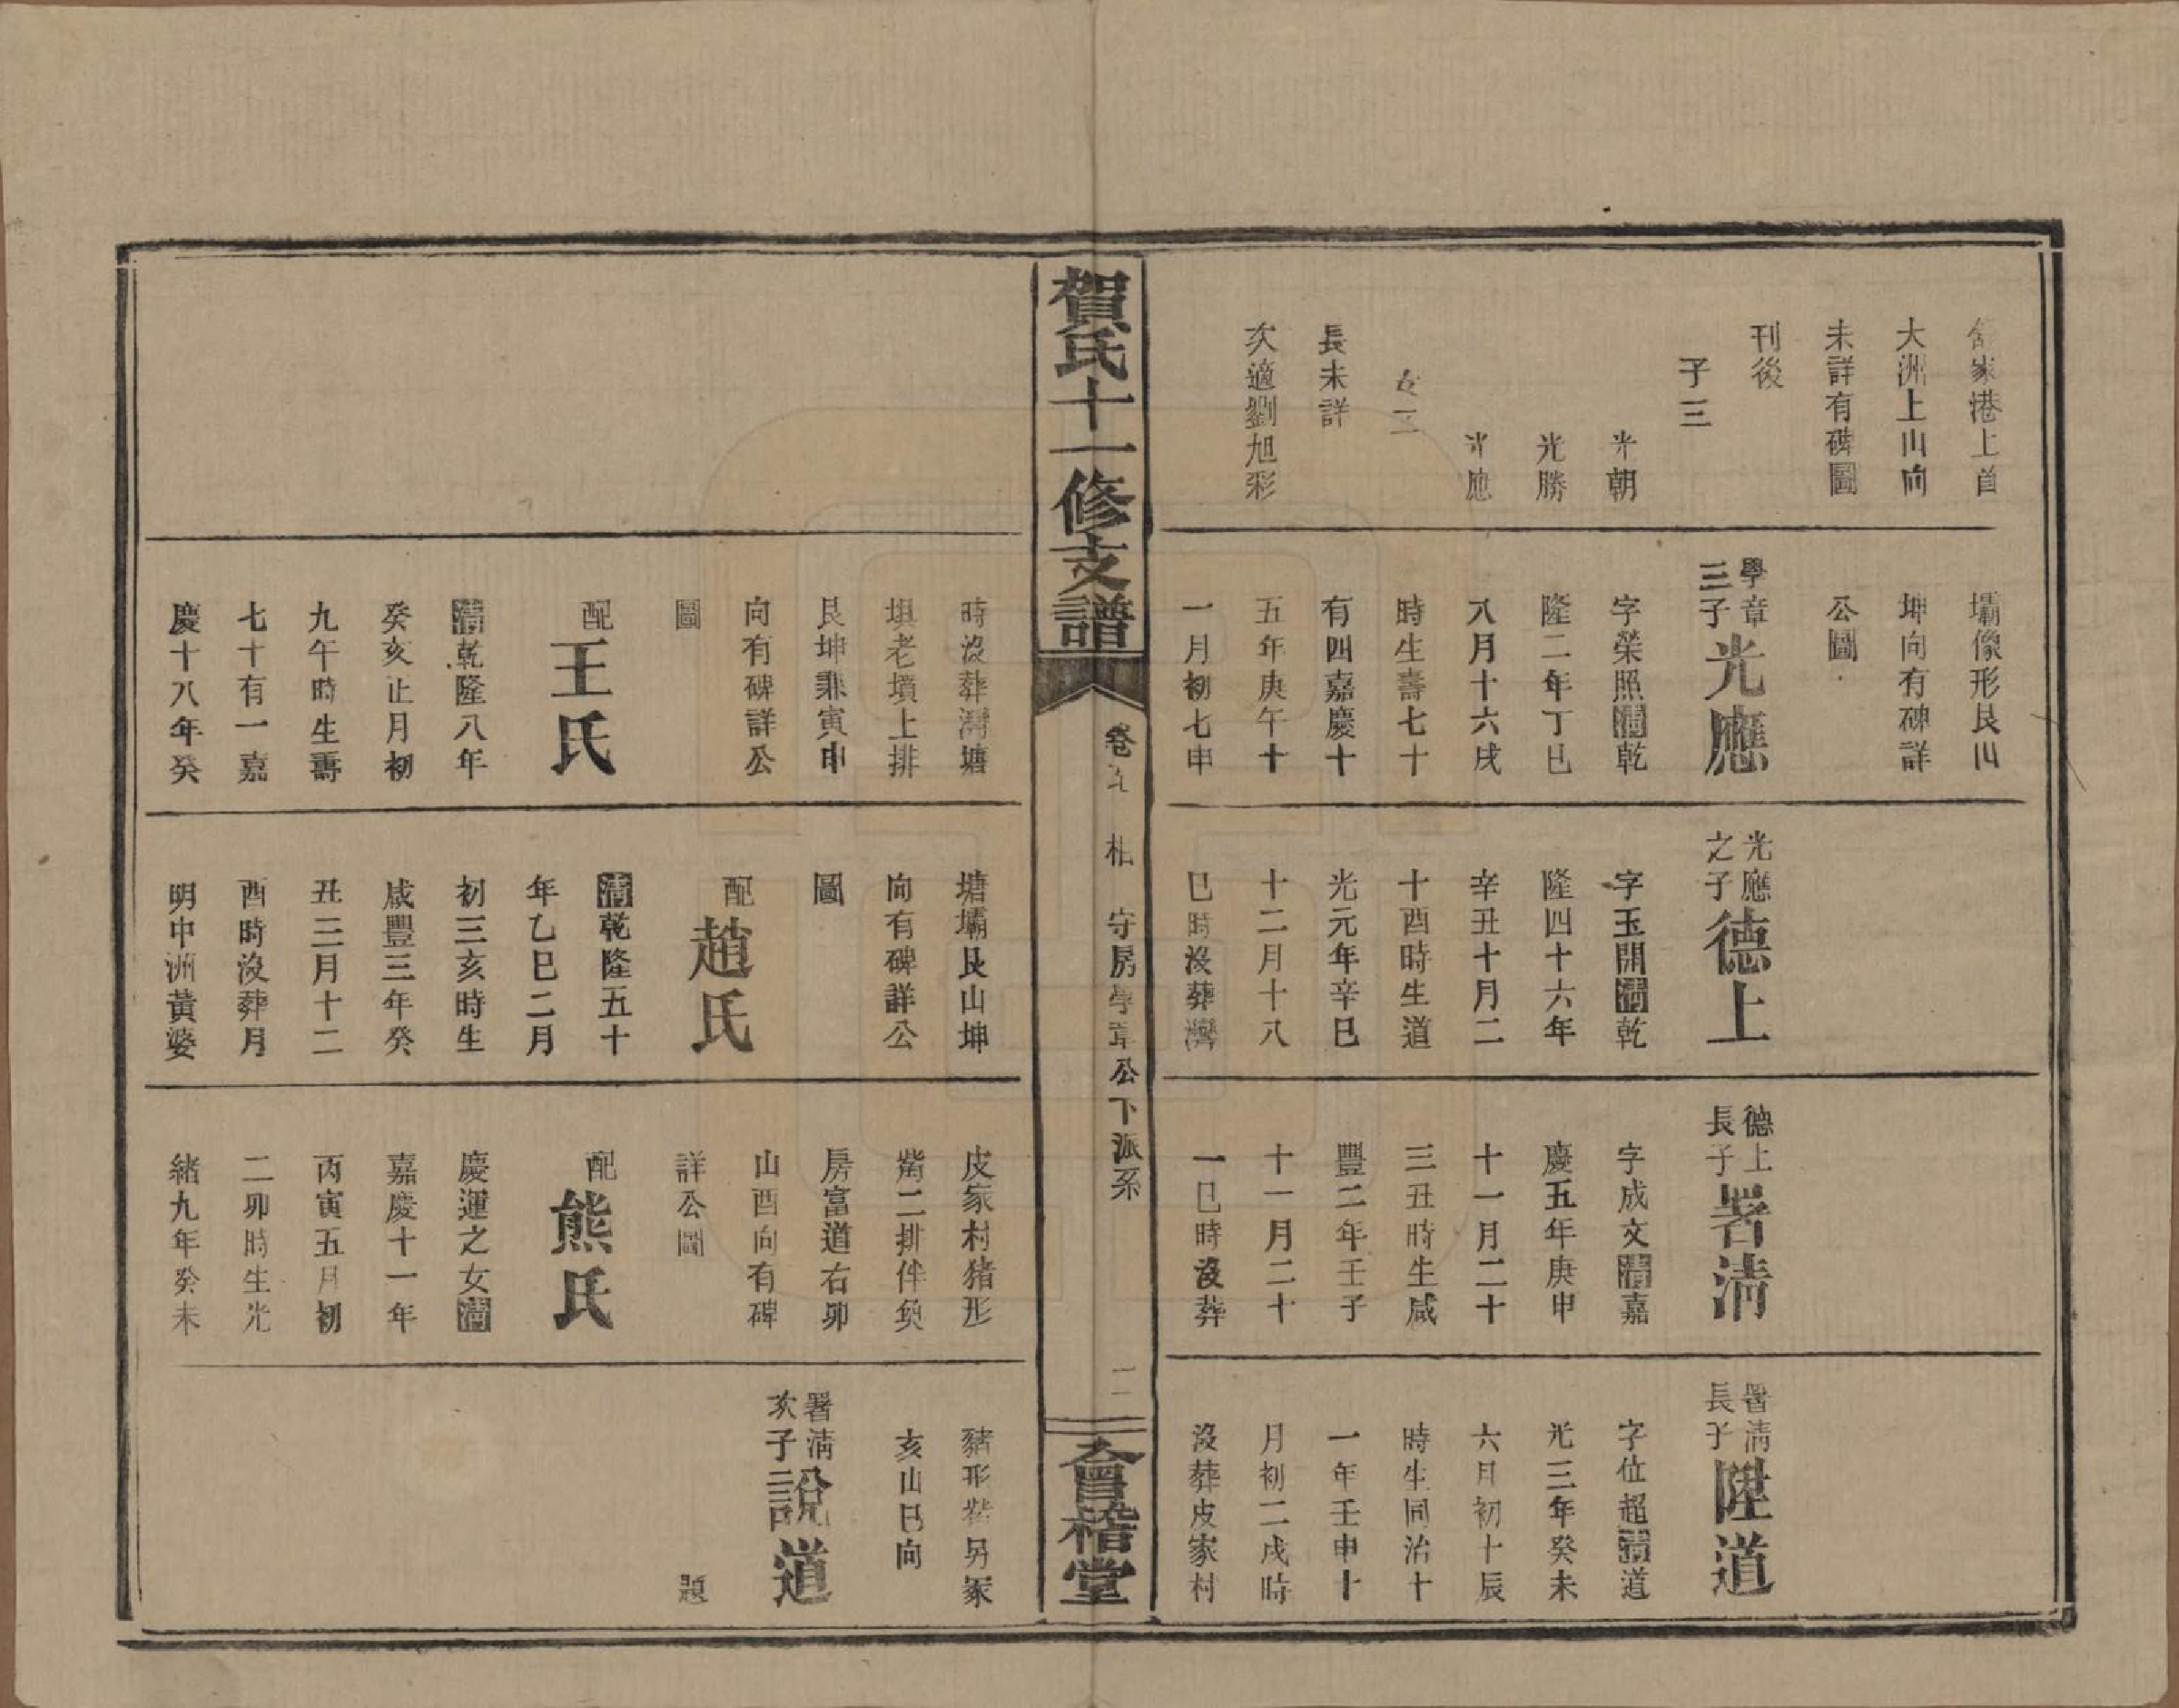 家港上首
大洲上山向
未詳有碑圖
刊後
子三
光朝
光勝
光應
女二
長未詳
次適劉旭彩
壩像形艮山
坤向有碑詳
公圖
學章
三子
光應
字榮照清乾
隆二年丁巳
八月十六戌
時生壽七十
有四嘉慶十
五年庚午十
一月初七申
光應
之子
德上
字玉開清乾
隆四十六年
辛丑十月二
十酉時生道
光元年辛巳
十二月十八
巳時沒葬灣
德上
長子
署清
字成文清嘉
慶五年庚申
十一月二十
三丑時生咸
豐二年壬子
十一月二十
一巳時沒葬
署清
長子
陞道
字位超清道
光三年癸未
六月初十辰
時生同治十
一年壬申十
月初二戌時
沒葬皮家村
賀氏十一修支譜
卷九
相
守房學章公下派系
二
會稽堂
時沒葬灣塘
塤老墳上排
艮坤兼寅申
向有碑詳公
圖
配
王氏
清乾隆八年
癸亥正月初
九午時生壽
七十有一嘉
慶十八年癸
塘壩艮山坤
向有碑詳公
圖
配
趙氏
清乾隆五十
年乙巳二月
初三亥時生
咸豐三年癸
丑三月十二
酉時沒葬月
明中洲黃婆
皮家村猪形
嘴二排伴奐
房富道右卯
山酉向有碑
詳公圖
配
熊氏
慶運之女清
嘉慶十一年
丙寅五月初
二卯時生光
緒九年癸未
豬形嘴另冢
亥山巳向
署清
次子
說道
題